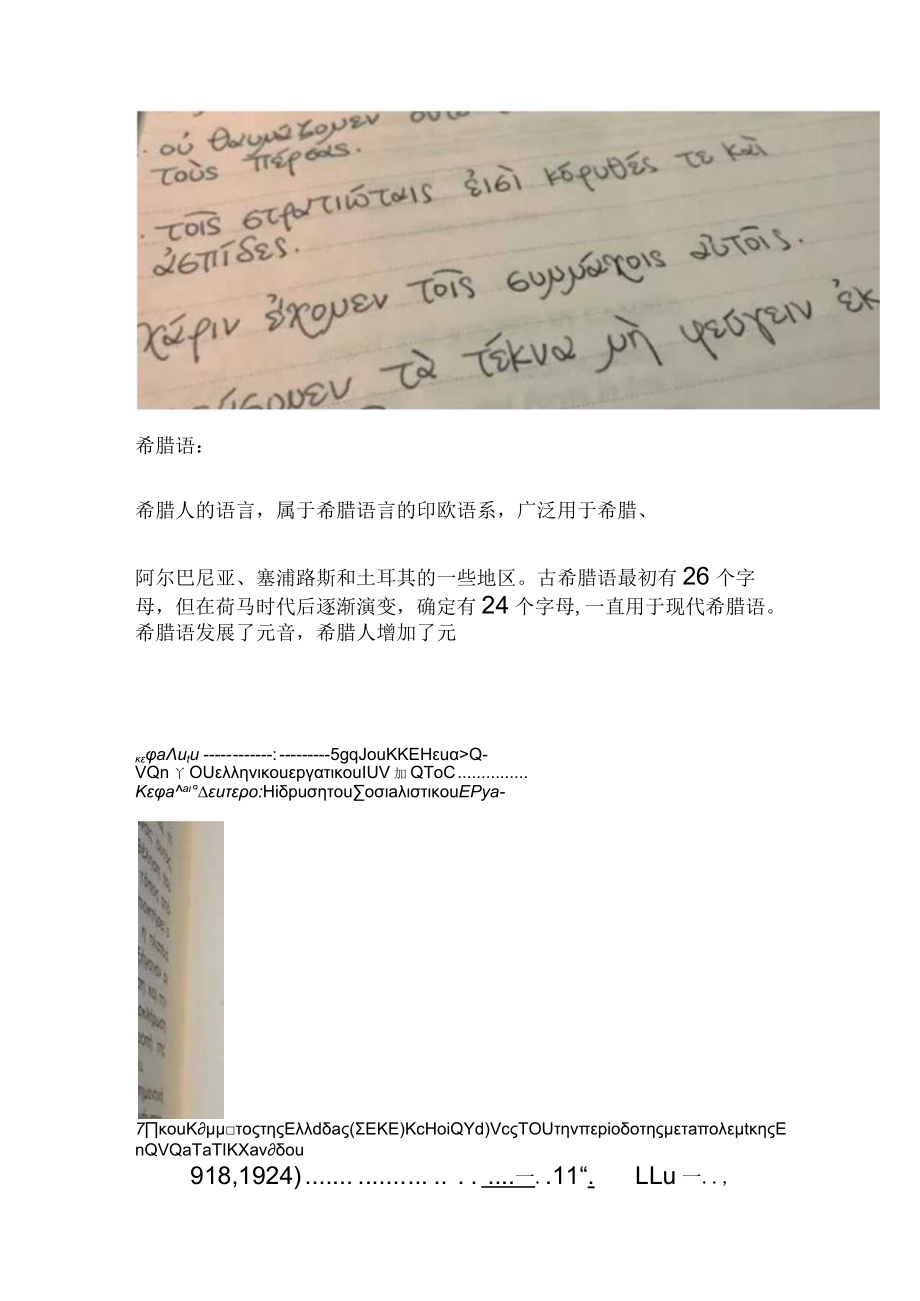 οὐ θαυμάζομεν
τοὺς πέρσας.
τοῖς στρατιώταις εἰσὶ κόρυθές τε καὶ
ἀσπίδες.
χάριν ἔχομεν τοῖς συμμάχοις αὐτοῖς.
τὰ τέκνα μὴ φεύγειν ἐκ
希腊语：
希腊人的语言，属于希腊语言的印欧语系，广泛用于希腊、
阿尔巴尼亚、塞浦路斯和土耳其的一些地区。古希腊语最初有 26 个字
母，但在荷马时代后逐渐演变，确定有 24 个字母, 一直用于现代希腊语。
希腊语发展了元音，希腊人增加了元
κεφαΛυtu ------------: ---------5gqJouKKEHεuα>Q-
VQn 丫 OUελληνικουεργατικουIUV 加 QToC...............
Κεφα^αι°∆ευτερο:Ηiδρυσητου∑οσιαλιστικουEPya-
7∏κουΚ∂μμ□τοςτηςΕλλdδας(ΣΕΚΕ)KcHoiQYd)VcςTOUτηνπεριοδοτηςμεταπολεμtκηςΕ
nQVQaTaTIKXav∂δου
918,1924)....... .......... .. . . ....一. .11“. LLu 一. . ,